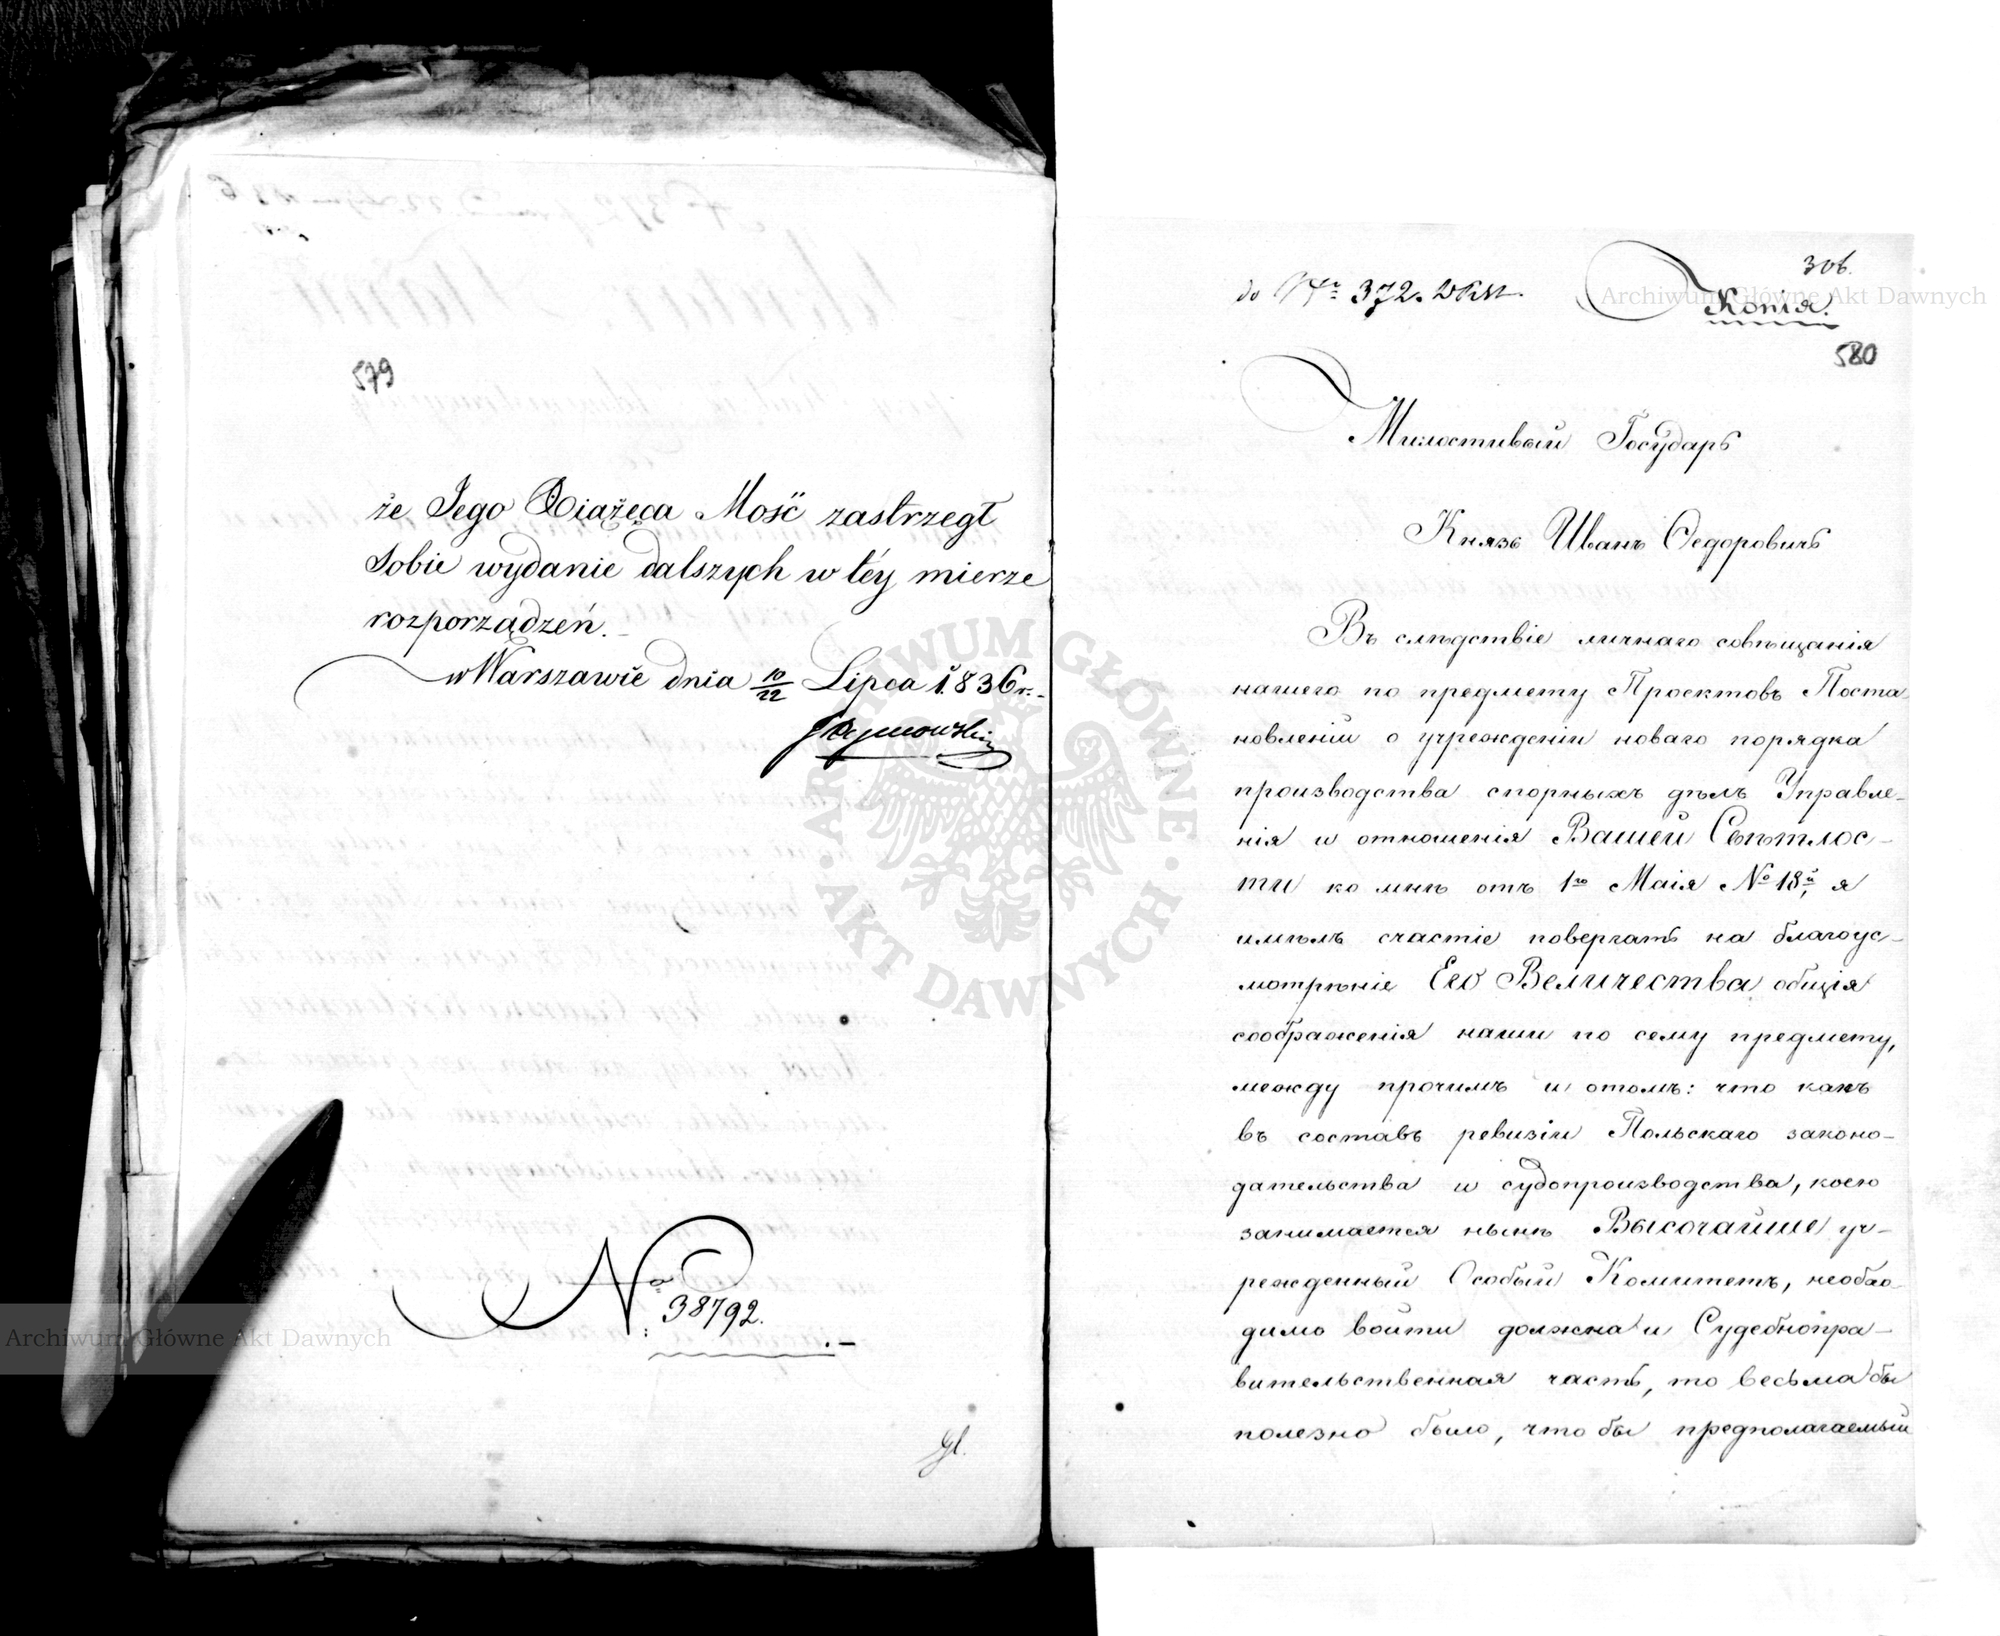 579
że Jego Xiążęca Mość zastrzegł
Sobie wydanie dalszych w téy mierze
rozporządzeń.
w Warszawie dnia 10/22 Lipca 1836 r.
No 38792.
gl.
306.
do Nr 372. DKSt.
Копiя.
580
Милостивый Государь
Князь Иванъ Федоровичь
Въ слѣдствiе личнаго совѣщанiя
нашего по предмету Проектовъ Поста-
новленiй о учрежденiи новаго порядка
производства спорныхъ дѣлъ Управле-
нiя и отношенiя Вашей Свѣтлос-
ти ко мнѣ отъ 1го Маiя № 18й, я
имѣлъ счастiе повергать на благоус-
мотрѣнiе Его Величества общiя
соображенiя наши по сему предмету,
между прочимъ и отомъ: что какъ
въ составъ ревизiи Польскаго законо-
дательства и судопроизводства, коею
занимается нынѣ Высочайше уч-
режденный Особый Комитетъ, необхо-
димо войти должна и Судебноправ-
вительственная часть, то весьма бы
полезно было, что бы предполагаемый
Archiwum Główne Akt Dawnych
Archiwum Główne Akt Dawnych
ARCHIWUM GŁÓWNE AKT DAWNYCH